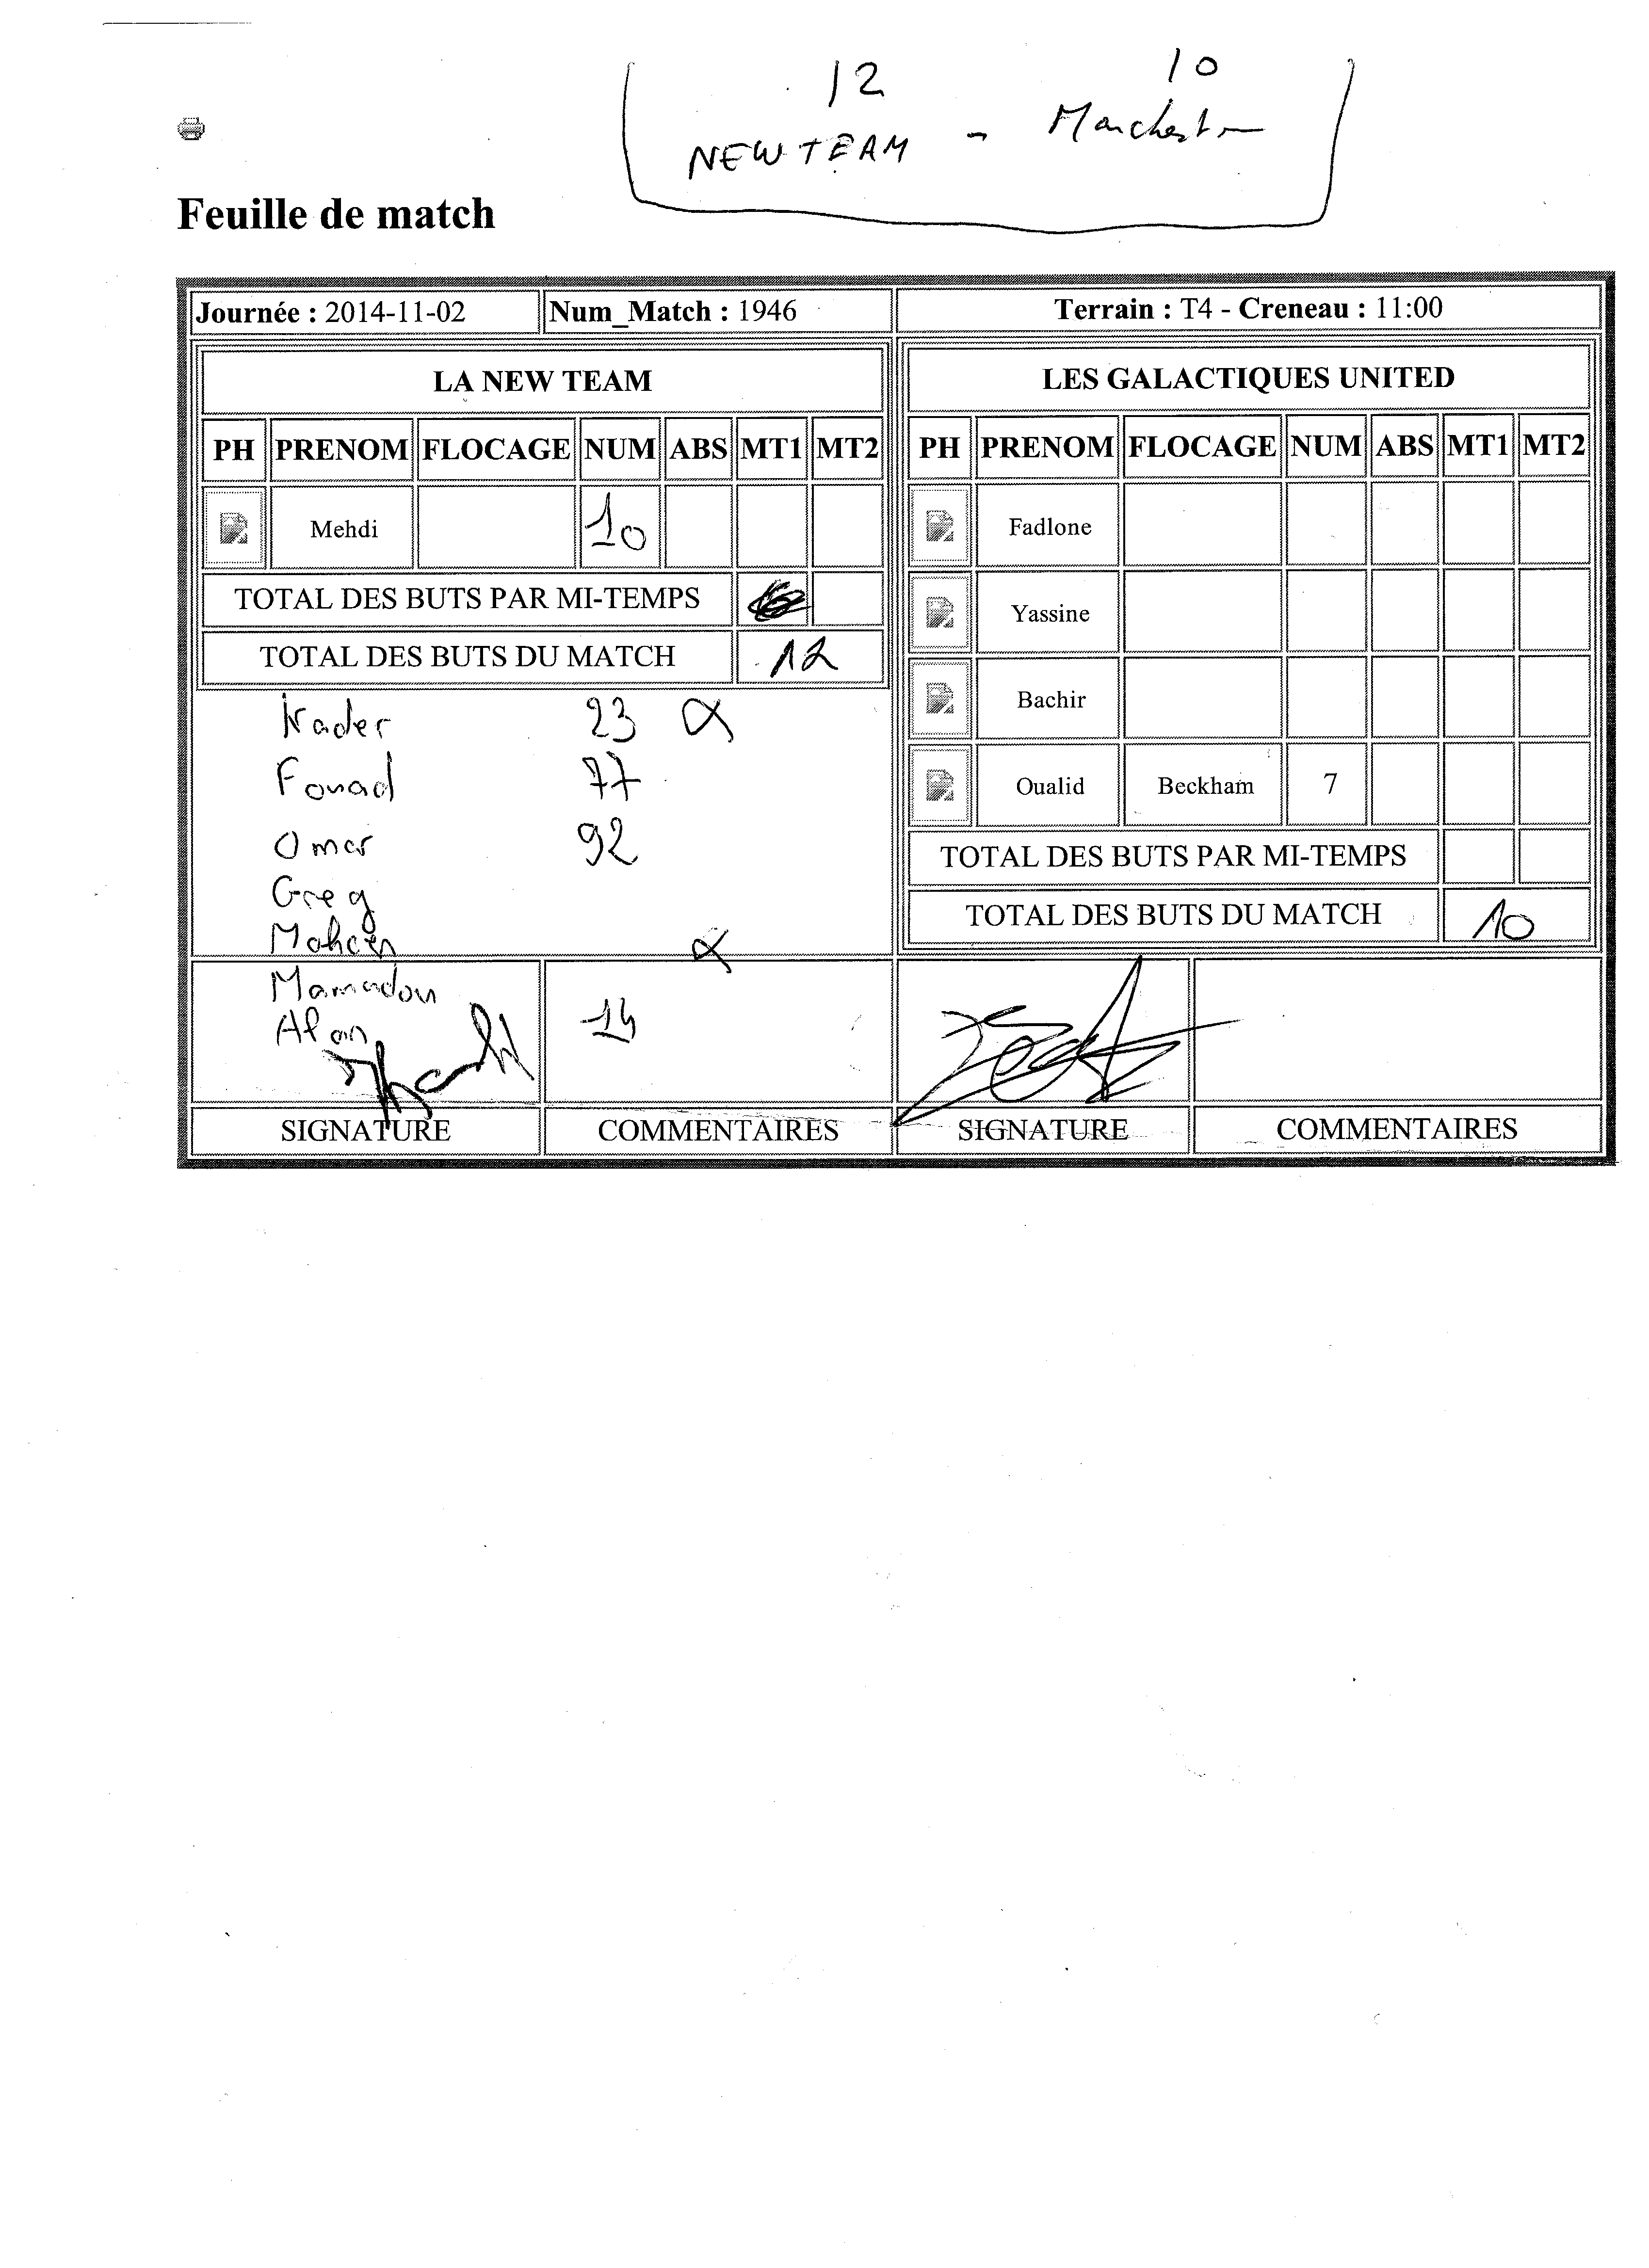 12 10
NEW TEAM - Manchester
Feuille de match
Journée : 2014-11-02 Num_Match : 1946 Terrain : T4 - Creneau : 11:00
LA NEW TEAM
PH PRENOM FLOCAGE NUM ABS MT1 MT2
Mehdi 10
TOTAL DES BUTS PAR MI-TEMPS
TOTAL DES BUTS DU MATCH 12
Kader 23
Fouad 77
Omar 92
Greg
Mohcen
Mamadou
Alan 14
LES GALACTIQUES UNITED
PH PRENOM FLOCAGE NUM ABS MT1 MT2
Fadlone
Yassine
Bachir
Oualid Beckham 7
TOTAL DES BUTS PAR MI-TEMPS
TOTAL DES BUTS DU MATCH 10
SIGNATURE COMMENTAIRES SIGNATURE COMMENTAIRES